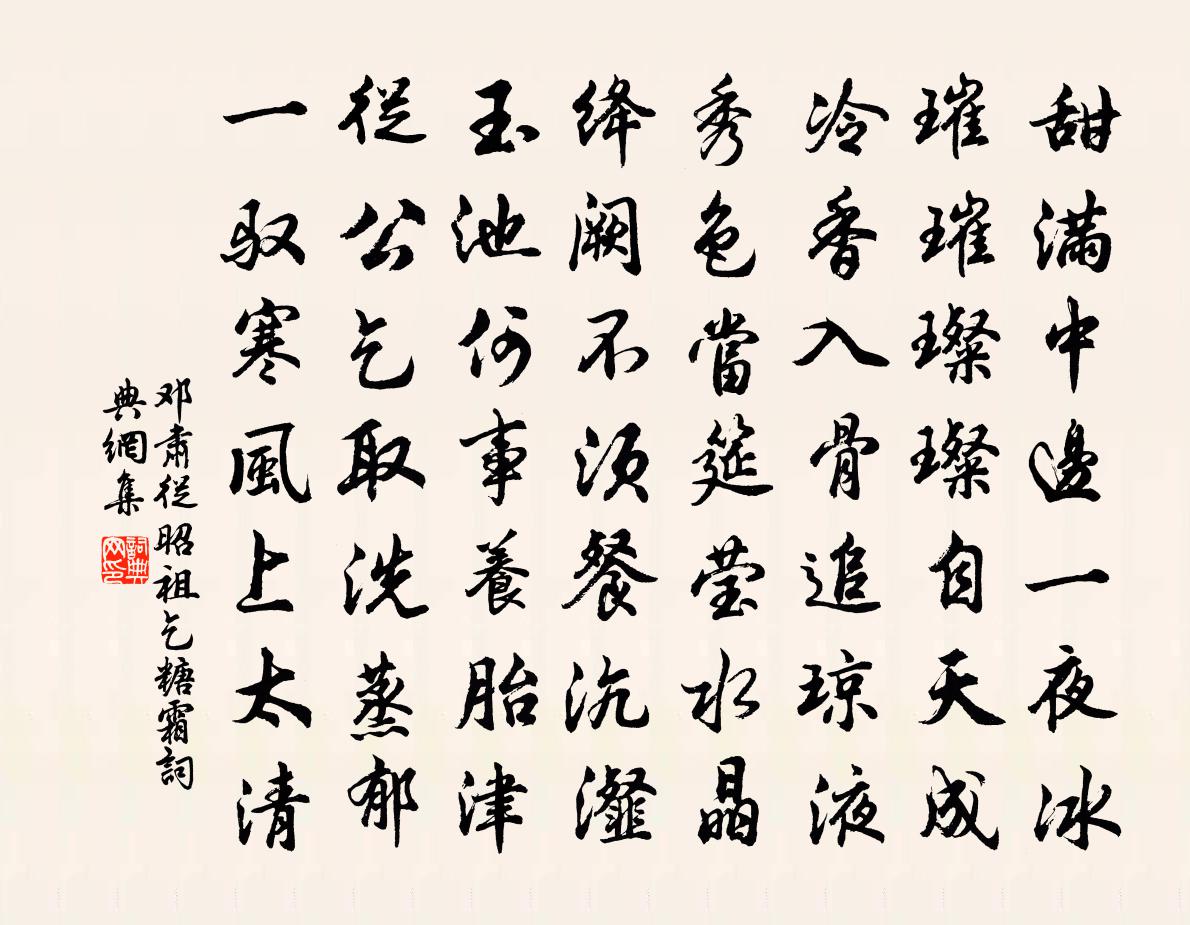 甜满中邊一夜冰
璀璀璨璨自天成
冷香入骨追琼液
秀色當筵莹水晶
绛阙不须餐沆瀣
玉池何事養胎津
從公乞取洗蒸郁
一驭寒風上太清
邓肃從昭祖乞糖霜詞
典網集
詞典
网印